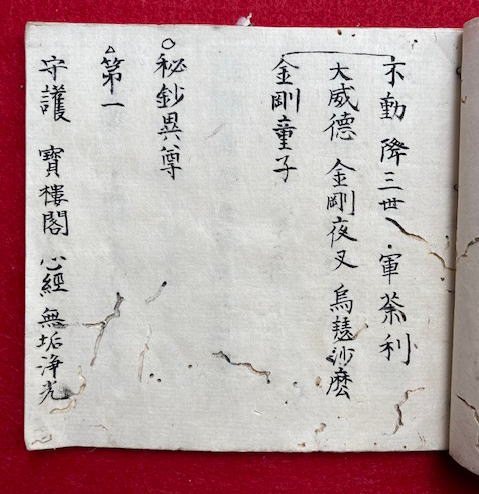 不動 降三世 軍荼利
大威德 金剛夜叉 烏瑟沙麼
金剛童子
○秘鈔異尊
△第一
守護 寶樓閣 心經 無垢淨光